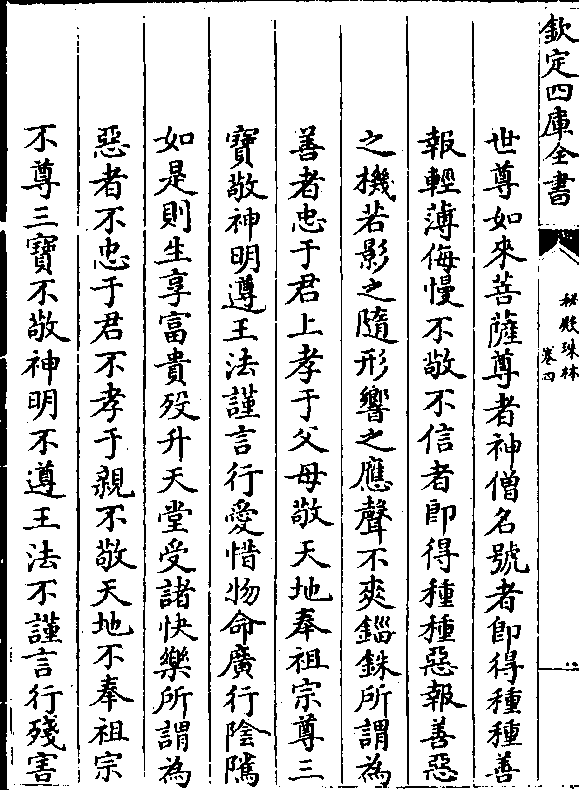 欽定四庫全書
秘殿珠林
卷四
世尊如來菩薩尊者神僧名號者即得種種善
報輕薄侮慢不敬不信者即得種種惡報善惡
之機若影之隨形響之應聲不爽錙銖所謂為
善者忠于君上孝于父母敬天地奉祖宗尊三
寶敬神明遵王法謹言行愛惜物命廣行陰隲
如是則生享富貴歿升天堂受諸快樂所謂為
惡者不忠于君不孝于親不敬天地不奉祖宗
不尊三寶不敬神明不遵王法不謹言行殘害